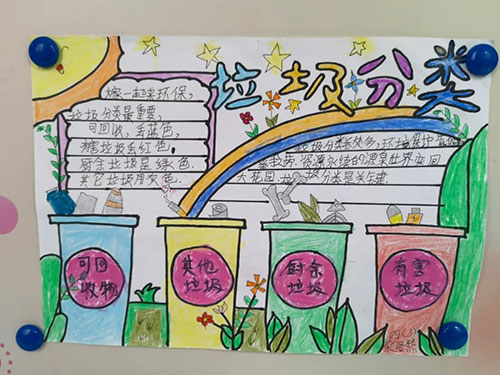 垃圾分类
嫁一起来环保,
垃圾分类最重要,
可回收,丢蓝色,
丢红色,
厨余垃圾是绿色
其它垃圾用灰色.
垃圾分类好处多,环境保护
世界变回
大花园.垃圾分类是关键.
可回
收物
其他
垃圾
厨余
垃圾
有害
垃圾
四(3)